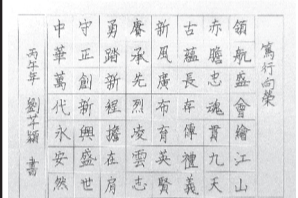 篤行向榮
領航盛會繪江山
赤膽忠魂貫九天
古蘊長存傳禮義
新風廣布育英賢
賡承先烈凌雲志
勇踏新程擔在肩
守正創新興盛世
中華萬代永安然
丙午年 劉芊穎 書